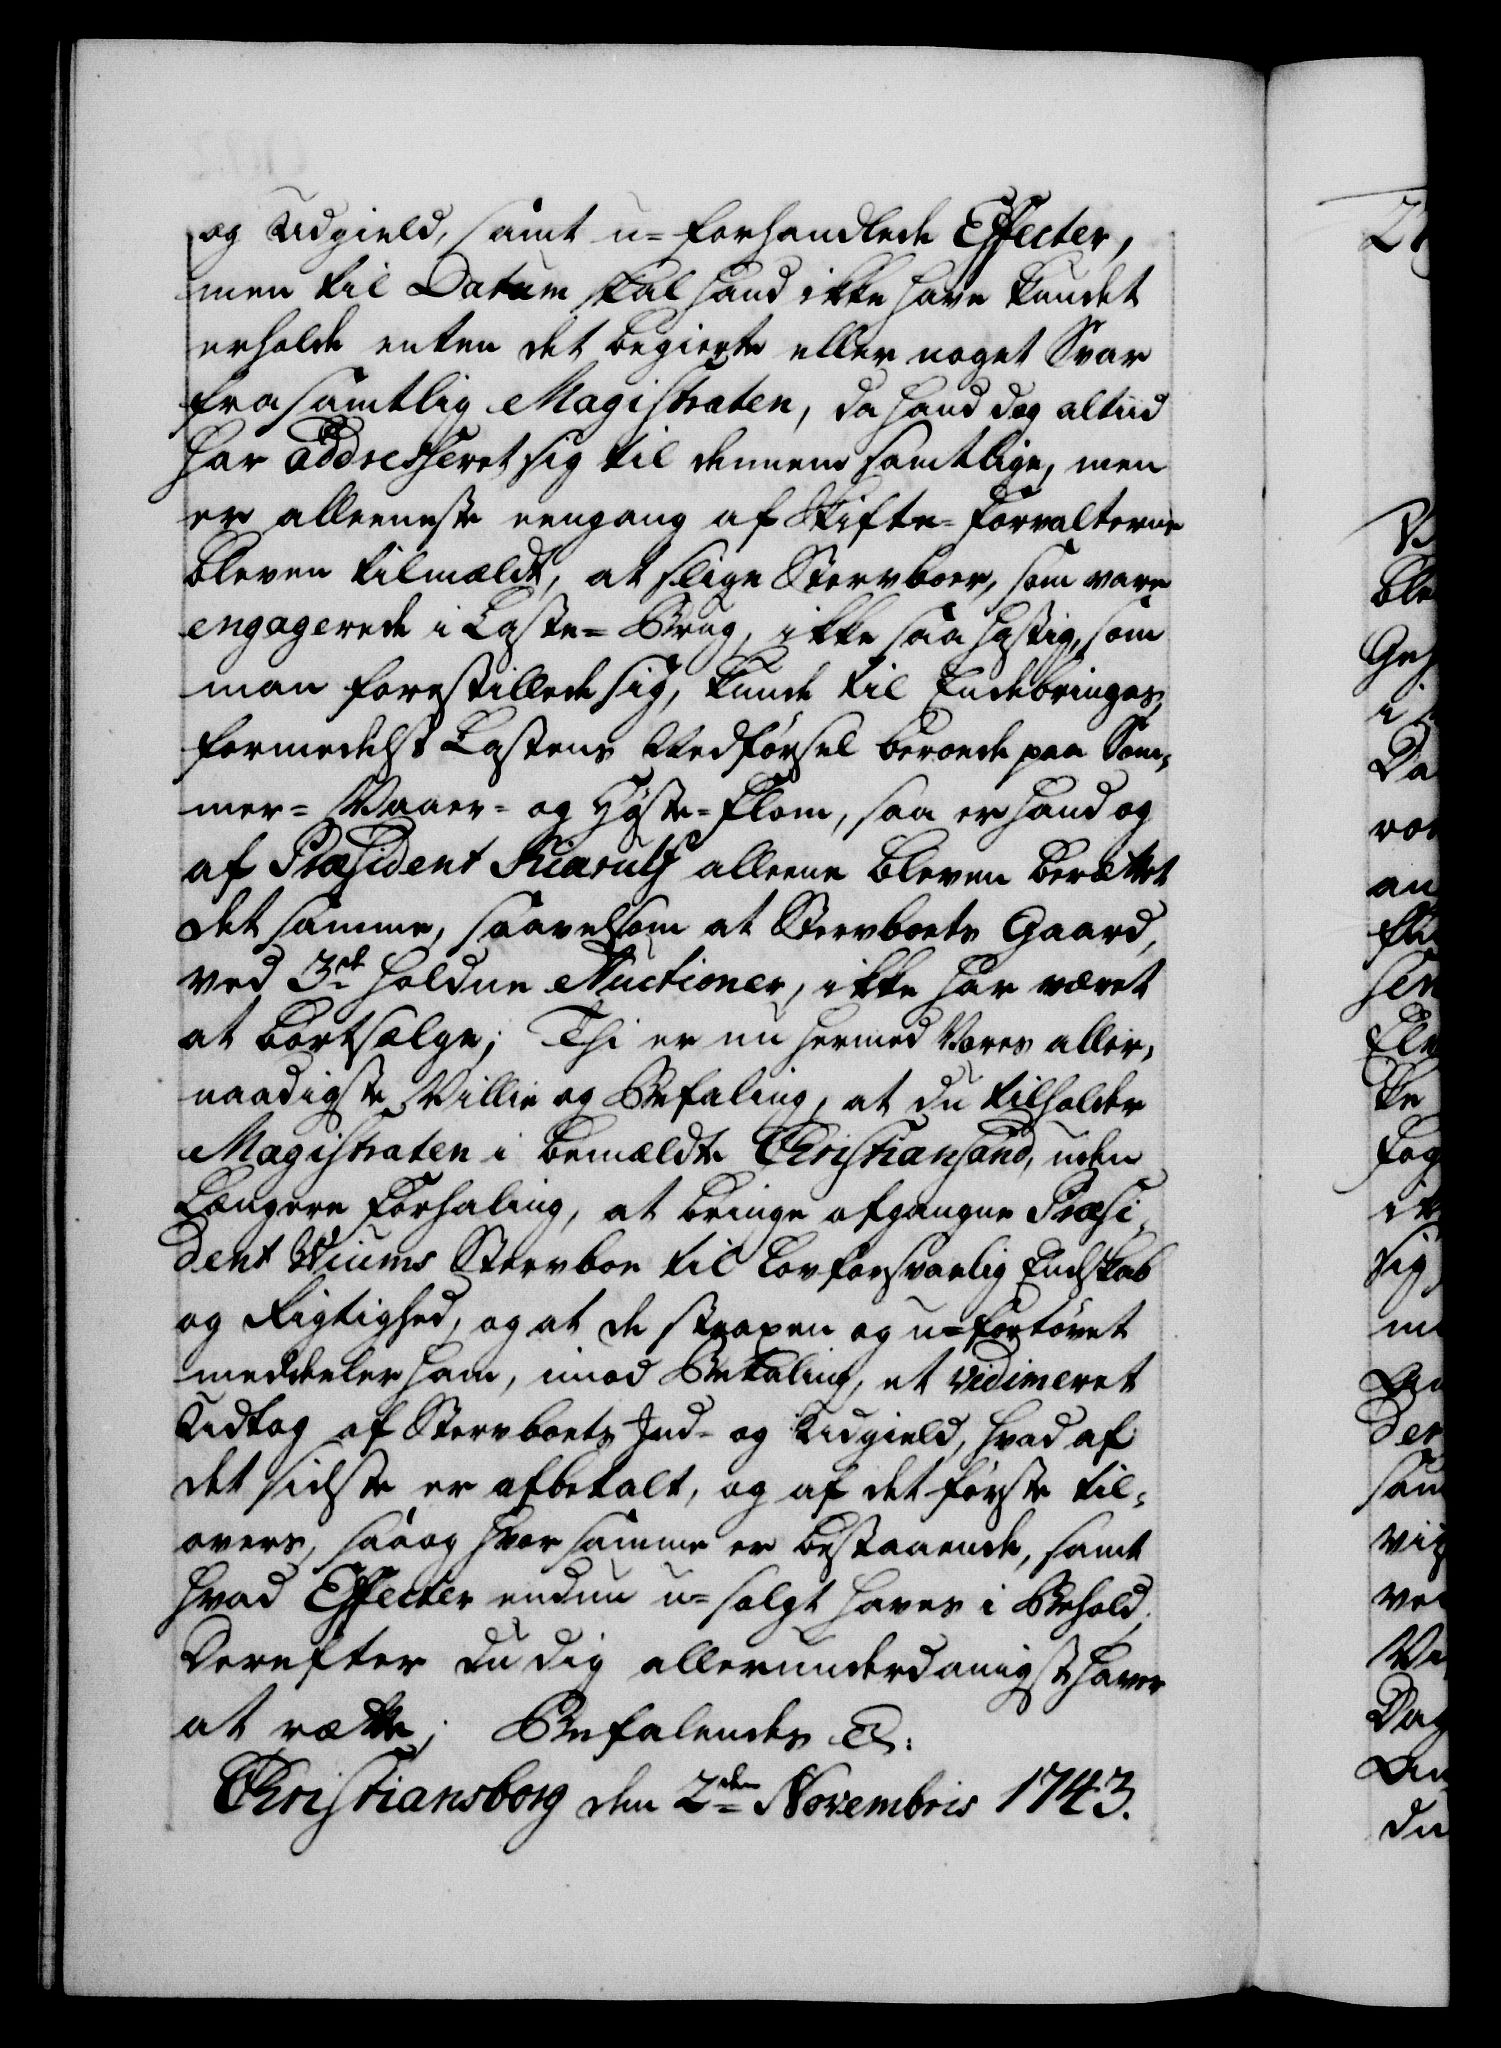 og Udgield, samt u=forhandlede Effecter,
men til Datum skal hand ikke have kundet
erholde enten det begierte eller noget Svar
fra samtlig Magistraten, da hand dog altiid
har addresseret sig til dennem samtlige, men
er alleeneste eengang af Skifte=Forvalterne
bleven tilmældt, at slige Stervboer, som vare
engagerede i Laste=Brug, ikke saa hastig, som
man forestillede sig, kunde til Ende bringes,
formedelst Lastens Nedførsel beroede paa Som,
mer= Vaaer= og Høste=Flom, saa er hand og
af Præsident Kiærulf alleene bleven berættet
det samme, saavelsom at Stervboets Gaard,
ved 3de holdne Auctioner, ikke har været
at bortsælge; Thi er nu hermed Vores aller,
naadigste Villie og Befaling, at du tilholder
Magistraten i bemældte Christiansand, uden
længere Forhaling, at bringe afgangne Præsi,
dent Wiums Stervboe til lovforsvarlig Endskab
og Rigtighed, og at de straxen og u=fortøvet
meddeeler ham, imod Betaling, et vidimeret
Udtog af Stervboets Ind= og Udgield, hvad af
det sidste er afbetalt, og af det første til,
overs, saa og hvor samme er bestaaende, samt
hvad Effecter endnu u=solgt haves i Behold;
Derefter du dig allerunderdanigst haver
at rætte; Befalendes &c:
Christiansborg den 2den Novembris 1743.